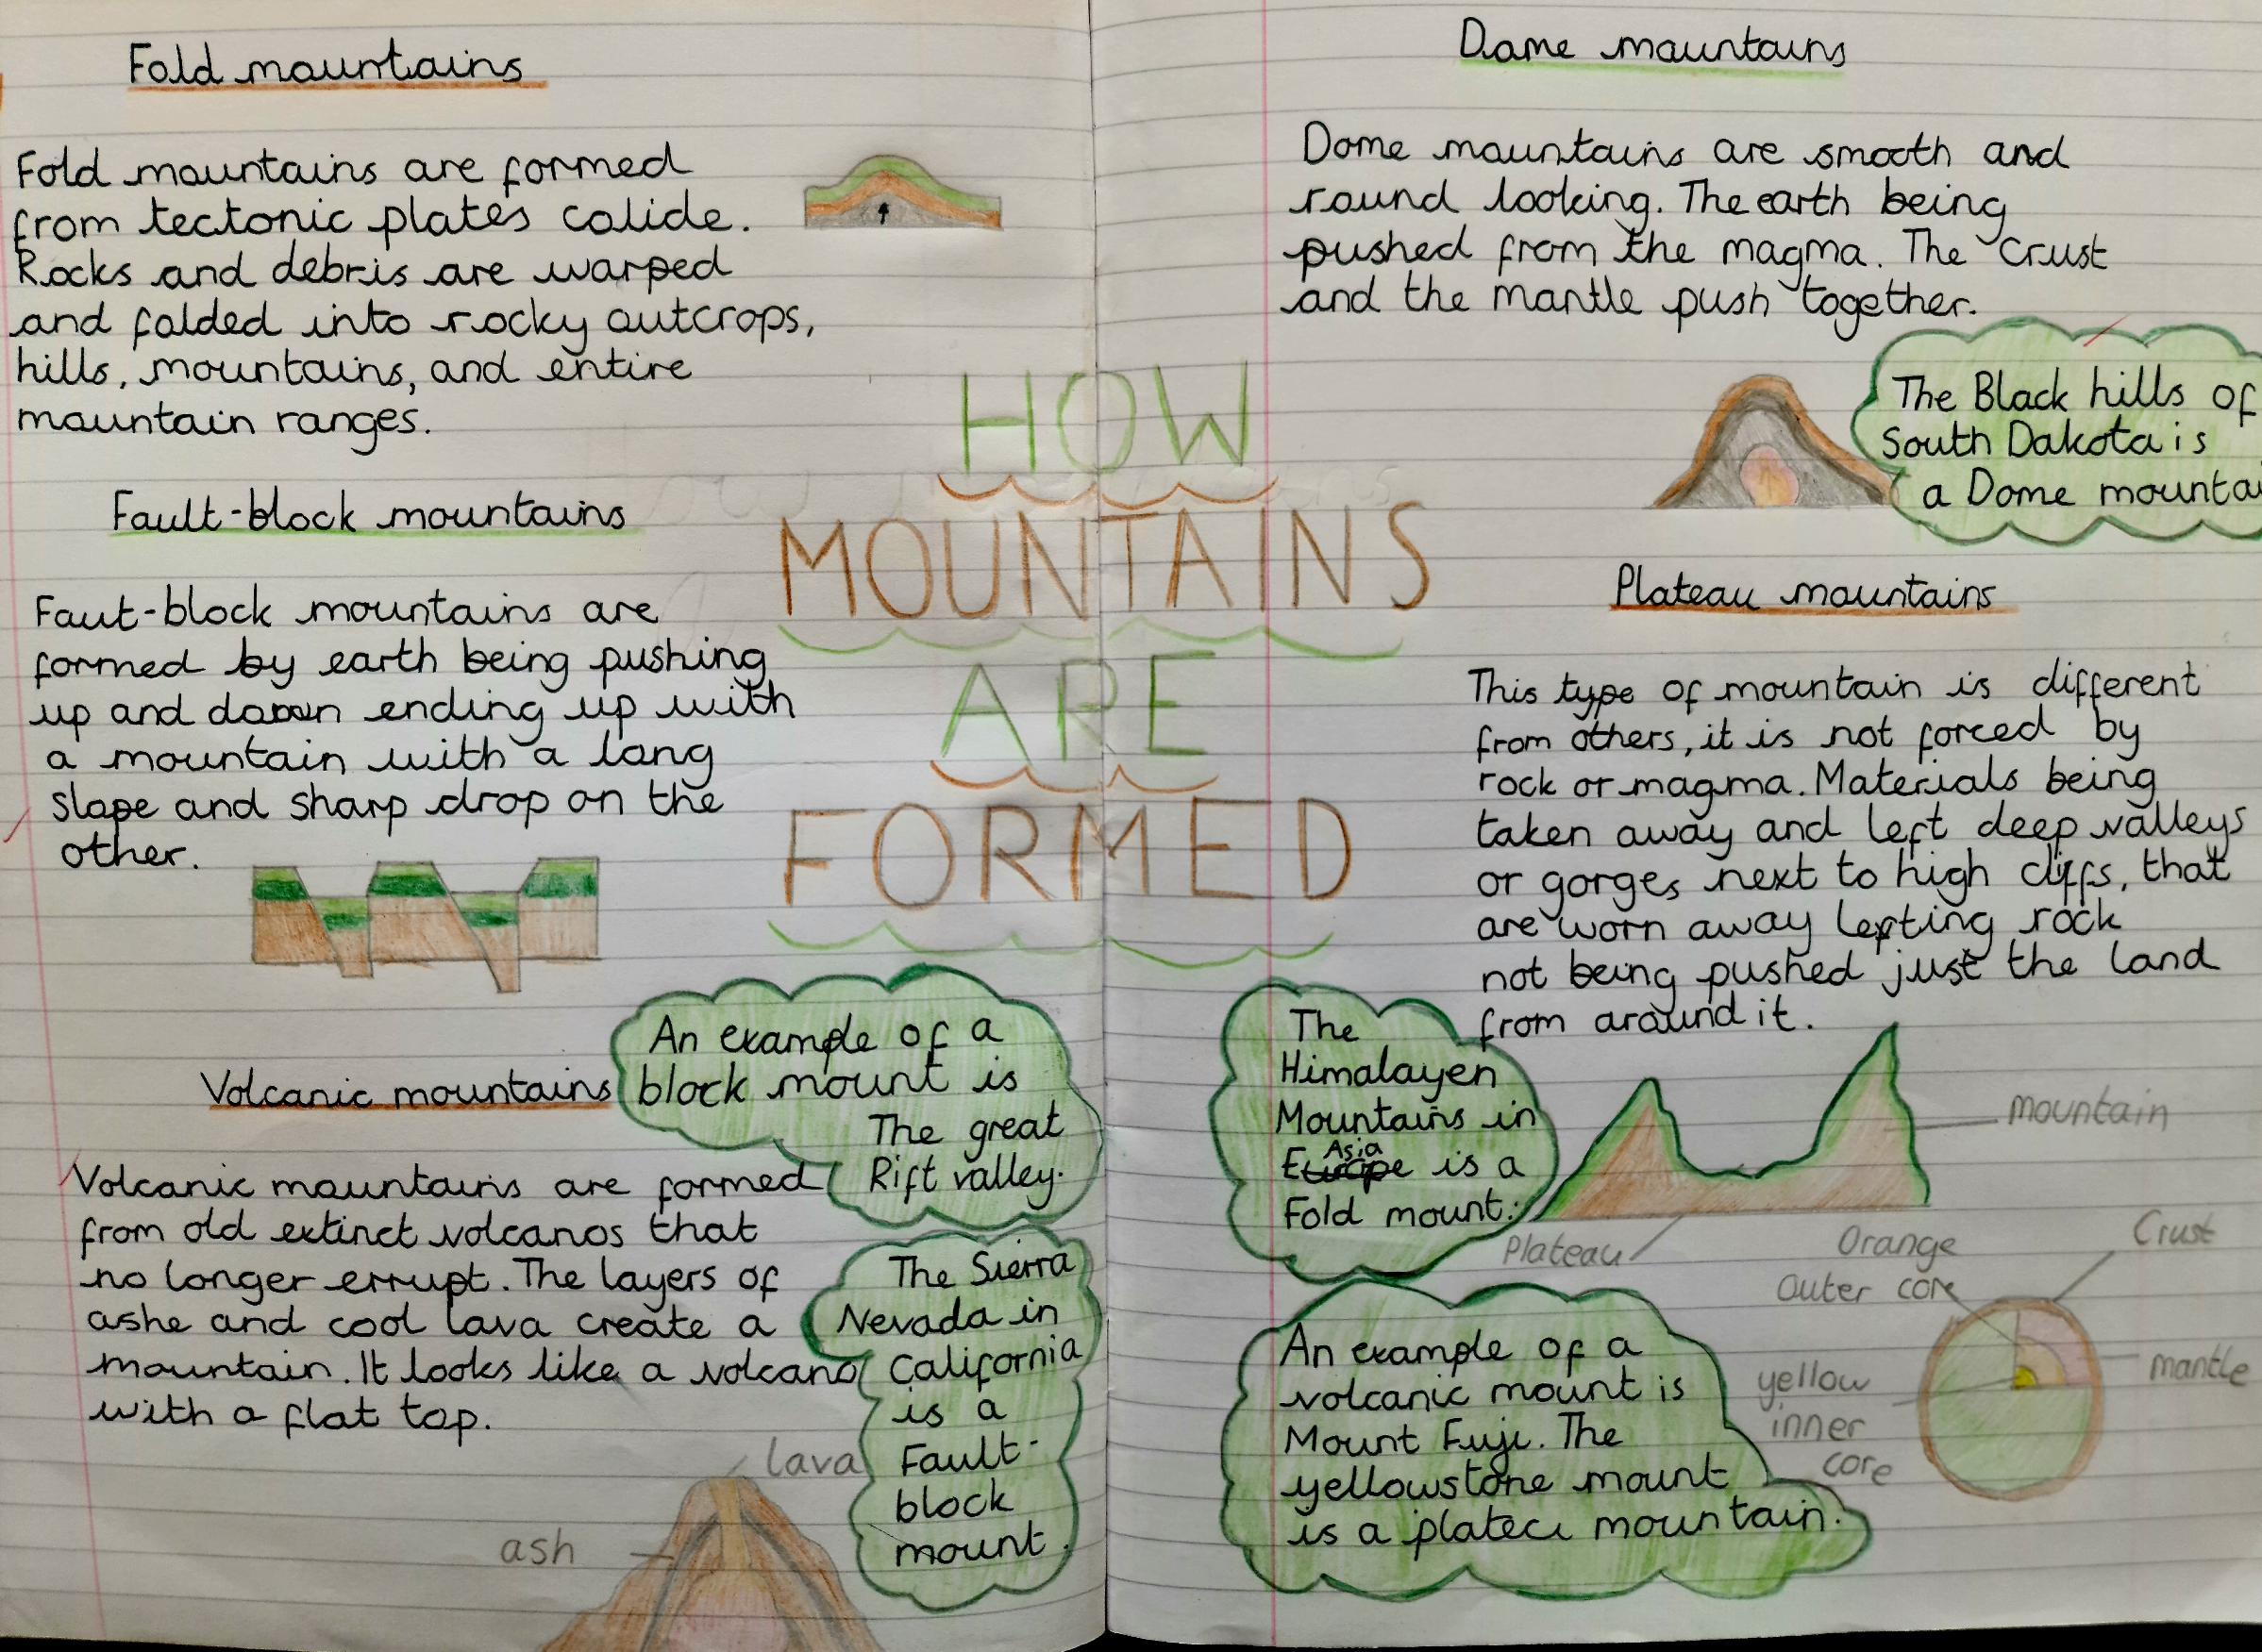 Fold mountains
Fold mountains are formed
from tectonic plates colide.
Rocks and debris are warped
and folded into rocky outcrops,
hills, mountains, and entire
mountain ranges.
Fault-block mountains
Faut-block mountains are
formed by earth being pushing
up and down ending up with
a mountain with a long
slope and sharp drop on the
other.
Volcanic mountains
Volcanic mountains are formed
from old extinct volcanos that
no longer errupt. The layers of
ashe and cool lava create a
mountain. It looks like a volcano
with a flat top.
lava
ash
An example of a
block mount is
The great
Rift valley.
The Sierra
Nevada in
California
is a
Fault-
block
mount.
HOW
MOUNTAINS
ARE
FORMED
Dome mountains
Dome mountains are smooth and
round looking. The earth being
pushed from the magma. The Crust
and the mantle push together.
The Black hills of
South Dakota is
a Dome mountai
Plateau mountains
This type of mountain is different
from others, it is not forced by
rock or magma. Materials being
taken away and left deep valleys
or gorges next to high cliffs, that
are worn away lefting rock
not being pushed just the land
from around it.
The
Himalayen
Mountains in
Asia
Europe is a
Fold mount.
mountain
Plateau
An example of a
volcanic mount is
Mount Fuji. The
yellowstone mount
is a plateu mountain.
Orange
Outer core
Crust
mantle
yellow
inner
core